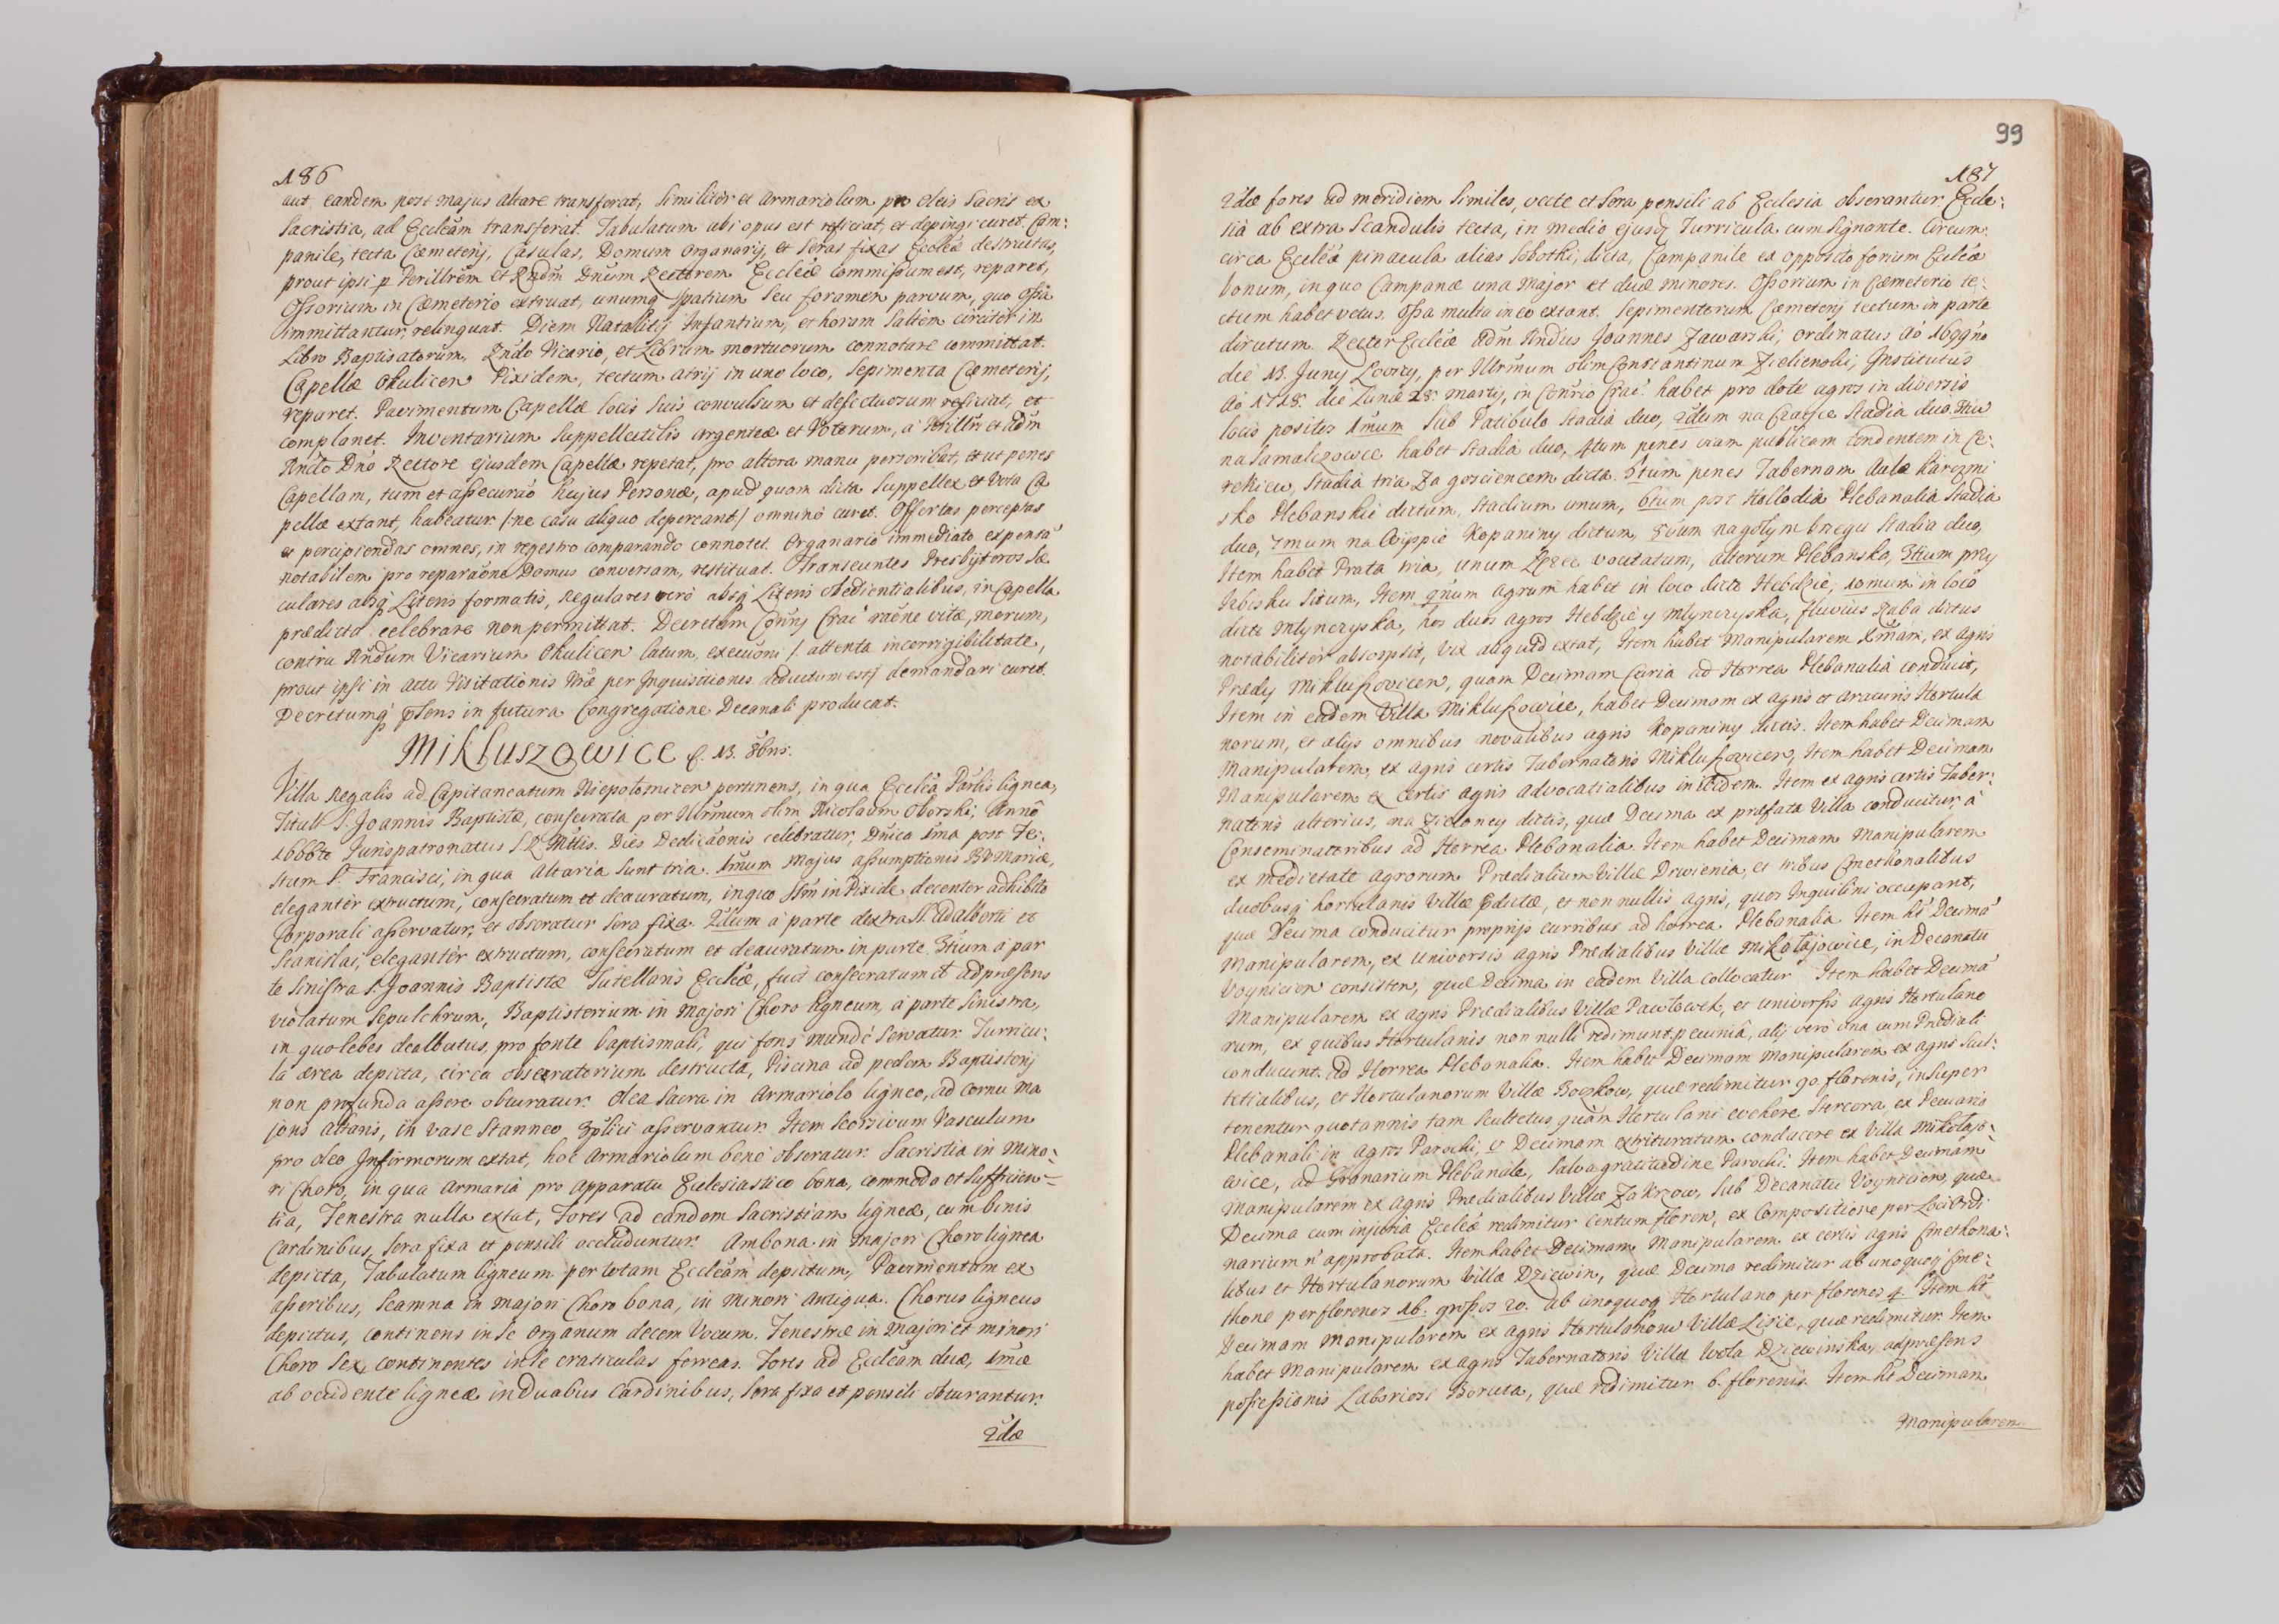 186
aut eandem post majus altare transferat, similiter et Armariolum pro oleis Sacris ex
Sacristia, ad Eccleam transferat. Tabulatum ubi opus est reficiat, et depingi curet. Cam:
panile, tecta Cæmeterij, Casulas, Domum Organarij, et seras fixas Eccleæ destructas,
prout ipsi p Perillrem et Rndm Dnum Rectorem Eccleiæ Commissum est, reparet,
Ossorium in Cæmeterio extruat, unumq spatium seu foramen parvum, quo ossa
immittantur, relinquat. Diem Natalitij Infantium, et horam saltem circiter in
Libro Baptisatorum, Rndo Vicario, et Librum mortuorum connotare committat.
Capellæ Okulicen Pixidem, tectum atrij in uno loco, sepimenta Cæmeterij,
reparet. Pavimentum Capellæ locis suis convulsum et defectuosum reficiat, et
complanet. Inventarium Suppellectilis argenteæ et Votorum, a Perillri et Adm
Rndo Dno Rectore ejusdem Capellæ repetat, pro altera manu perscribat, et ut penes
Capellam, tum et assecurao hujus Personæ, apud quam dicta Suppellex et Vota Ca
pellæ extant, habeatur /:ne casu aliquo depereant/ omnino curet. Offertas perceptas
et percipiendas omnes, in regestro comparando connotet. Organario immediato expensa
notabilem pro reparaone Domus conversam, restituat. Transeuntes Presbyteros Sæ
culares absq Literis formatis, Regulares vero absq Literis obedientialibus, in Capella
prædicta celebrare non permittat. Decretum Conrij Crac raone vitæ, morum,
contra Rndum Vicarium Okulicen latum, execuoni /: attenta incorrigibilitate,
prout ipsi in actu Visitationis Nræ per Inquisitiones deductum est/ demandari curet.
Decretumq psens in futura Congregatione Decanali producat.
Mikluszowice f. 13. 8bris.
Villa Regalis ad Capitaneatum Niepolomicen pertinens, in qua Ecclea Parlis lignea,
Tituli S. Joannis Baptistæ, consecrata per Illrmum olim Nicolaum Oborski, Anno
1666to Jurispatronatus S. R. Mttis. Dies Dedicaonis celebratur, Dnica 1ma post Fe:
stum S. Francisci, in qua Altaria sunt tria. 1mum Majus Assumptionis B.V. Mariæ,
eleganter extructum, consecratum et deauratum, in quo SSm in Pixide decenter adhibito
Corporali asservatur, et obseratur sera fixa. 2dum a parte dextra SS. Adalberti et
Stanislai, eleganter extructum, consecratum et deauratum in parte. 3tium a par
te sinistra S. Joannis Baptistæ Tutellaris Eccleæ, fuit consecratum et ad præsens
violatum sepulchrum, Baptisterium in majori Choro ligneum, a parte sinistra,
in quo lebes dealbatus, pro fonte baptismali, qui fons munde servatur. Turricu:
la ærea depicta, circa obseratorium destructa, Piscina ad pedem Baptisterij
non profunda assere obturatur. Olea Sacra in Armariolo ligneo, ad Cornu Ma
joris Altaris, in vase Stanneo 3plici asservantur. Item Scorsivum Vasculum
pro oleo Infirmorum extat, hoc Armariolum bene obseratur. Sacristia in mino:
ri Choro, in qua armaria pro apparatu Ecclesiastico bona, commoda et sufficien:
tia, Fenestra nulla extat, Fores ad eandem Sacristiam ligneæ, cum binis
Cardinibus, sera fixa et pensili occluduntur. Ambona in Majori Choro lignea
depicta, Tabulatum ligneum per totam Eccleam depictum, Pavimentum ex
asseribus, Scamna in majori Choro bona, in minori antiqua. Chorus ligneus
depictus, continens in se Organum decem Vocum. Fenestræ in majori et minori
Choro Sex, continentes in se craticulas ferreas. Fores ad Eccleam duæ, 1mæ
ab occidente ligneæ in duabus Cardinibus, sera fixa et pensili obturantur.
2dæ
99
187
2dæ fores ad meridiem similes, vecte et sera pensili ab Ecclesia obserantur Eccle:
sia ab extra Scandulis tecta, in medio ejusq Turricula cum signante. Circum:
circa Eccleæ pinacula alias Sobotki, dicta, Campanile ex opposito forium Eccleæ
bonum, in quo Campanæ una major et duæ minores. Ossorium in Cæmeterio te:
ctum habet vetus. Ossa multa in eo extant. Sepimentorum Cæmeterij tectum in parte
dirutum. Rector Eccleæ Adm Rndus Joannes Zawarski, ordinatus Ao 1699no
die 13. Junij Lovicij, per Illrmum olim Constantinum Zielienski, Institutus
Ao 1718. die Lunæ 28. martij, in Conrio Crac. habet pro dote agros in diversis
locis positos 1mum Sub Patibulo stadia duo, 2dum na stadia duo. 3tiu
na Samalczowce habet stadia duo, 4tum penes viam publicam tendentem in Ce:
rekiew, stadia tria Za gosciencem dicta. 5tum penes Tabernam Aulæ Karczmi
sko Plebanskie dictum, stadium unum, 6tum post Hallodia Plebanalia Stadia
duo, 7mum na Kopaniny dictum, 8vum na gołym brzegu stadia duo,
Item habet Prata tria, unum vocitatum, alterum Plebanska, 3tium przy
situm, Item 9num agrum habet in loco dicto Hebdzie, 10mum in loco
dicto Mlynczyska, hos duos agros Hebdzie y Mlynczyska, fluvius Raba dictus
notabiliter absorpsit, vix aliquid extat, Item habet Manipularem Xmam, ex agris
Prædij Mikluszovicen, quam Decimam Curia ad Horrea Plebanalia conducit,
Item in eadem Villa Mikluszowice, habet Decimam ex agris et araturis Hortula
norum, et alijs omnibus novalibus agris Kopaniny dictis. Item habet Decimam
Manipularem, ex agris certis Tabernatoris Mikluszovicen, Item habet Decimam
Manipularem ex certis agris Advocatialibus in ibidem. Item ex agris certis Taber:
natoris alterius, na Zieloney dictis, quæ Decima ex præfata Villa conducitur, a
Conseminatoribus ad Horrea Plebanalia. Item habet Decimam Manipularem
ex medietate agrorum Prædialium Villæ Drwienia, et tribus Cmethonalibus
duobusq hortulanis Villæ pdictæ, et non nullis agris, quos Inquilini occupant,
quæ Decima conducitur proprijs curribus ad horrea Plebanalia Item ht Decimā
Manipularem, ex universis agris Prædialibus Villæ Mikołajowice, in Decanatu
Voynicien consisten, quæ Decima in eadem Villa collocatur. Item habet Decimā
Manipularem ex agris Prædialibus Villæ Pawłowek, et universis agris Hortulano
rum, ex quibus Hortulanis non nulli redimunt pecunia, alij vero una cum Prædiali
conducunt. ad Horrea Plebanalia. Item habet Decimam Manipularem ex agris Scul:
tetialibus, et Hortulanorum Villæ Boczkow, quæ redimitur 90. florenis, insuper
tenentur quotannis tam Scultetus, quam Hortulani evehere Stercora, ex
Plebanali in agros Parochi, et Decimam extrituratam conducere ex Villa Mikołajo:
wice, ad Granarium Plebanale, salva gratitudine Parochi. Item habet Decimam
Manipularem ex agris Prædialibus Villæ Zakrzow, sub Decanatu Voynicien, quæ
Decima cum injuria Eccleæ redimitur Centum floren, ex Compositione per Loci Ordi
narium n approbata. Item habet Decimam Manipularem ex certis agris Cmethona:
libus et Hortulanorum Villæ Dziewin, quæ Decima redimitur ab unoquoq Cme:
thone per florenos 16. grossos 20. ab unoquoq Hortulano per florenos 4. Item ht
Decimam Manipularem ex agris Hortulanorum Villæ Lisie, quæ redimitur. Item
habet Manipularem ex agris Tabernatoris Villæ Wola Dziewinska, ad præsens
possessionis Laboriosi Boruta, quæ redimitur 6. florenis. Item ht Decimam
Manipularem